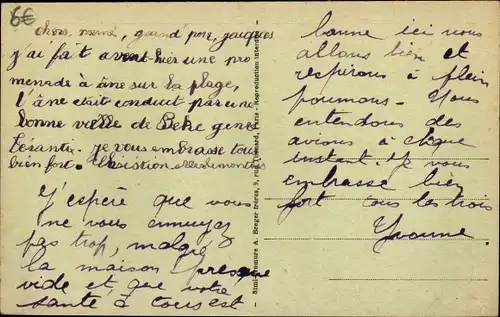 6€
chers, mémé, grand père, jacques
j'ai fait avant-hier une pro
menade à âne sur la plage,
l'âne était conduit par une
bonne vieille de Beke gene
je vous embrasse tous
bien fort.
J'espère que vous
ne vous ennuyez
pas trop, malgré
la maison presque
vide et que votre
santé à tous est
Simi-Bromure A. Breger frères, 9, rue Thénard, Paris - Reproduction interdite
bonne ici nous
allons bien et
respirons à plein
poumons. Nous
entendons des
avions à chque
instant. Je vous
embrasse bien
fort tous les trois
Yvonne